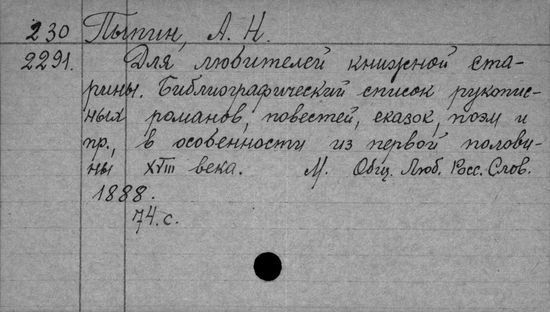 230 Пыпин, А. Н.
2291. Для любителей книжной ста-
рины. Библиографический список рукопис-
ных романов, повестей, сказок, поэм и
пр., в особенности из первой полови-
ны XVIII века. М. Общ. Люб. Росс. Слов.
1888.
74 с.